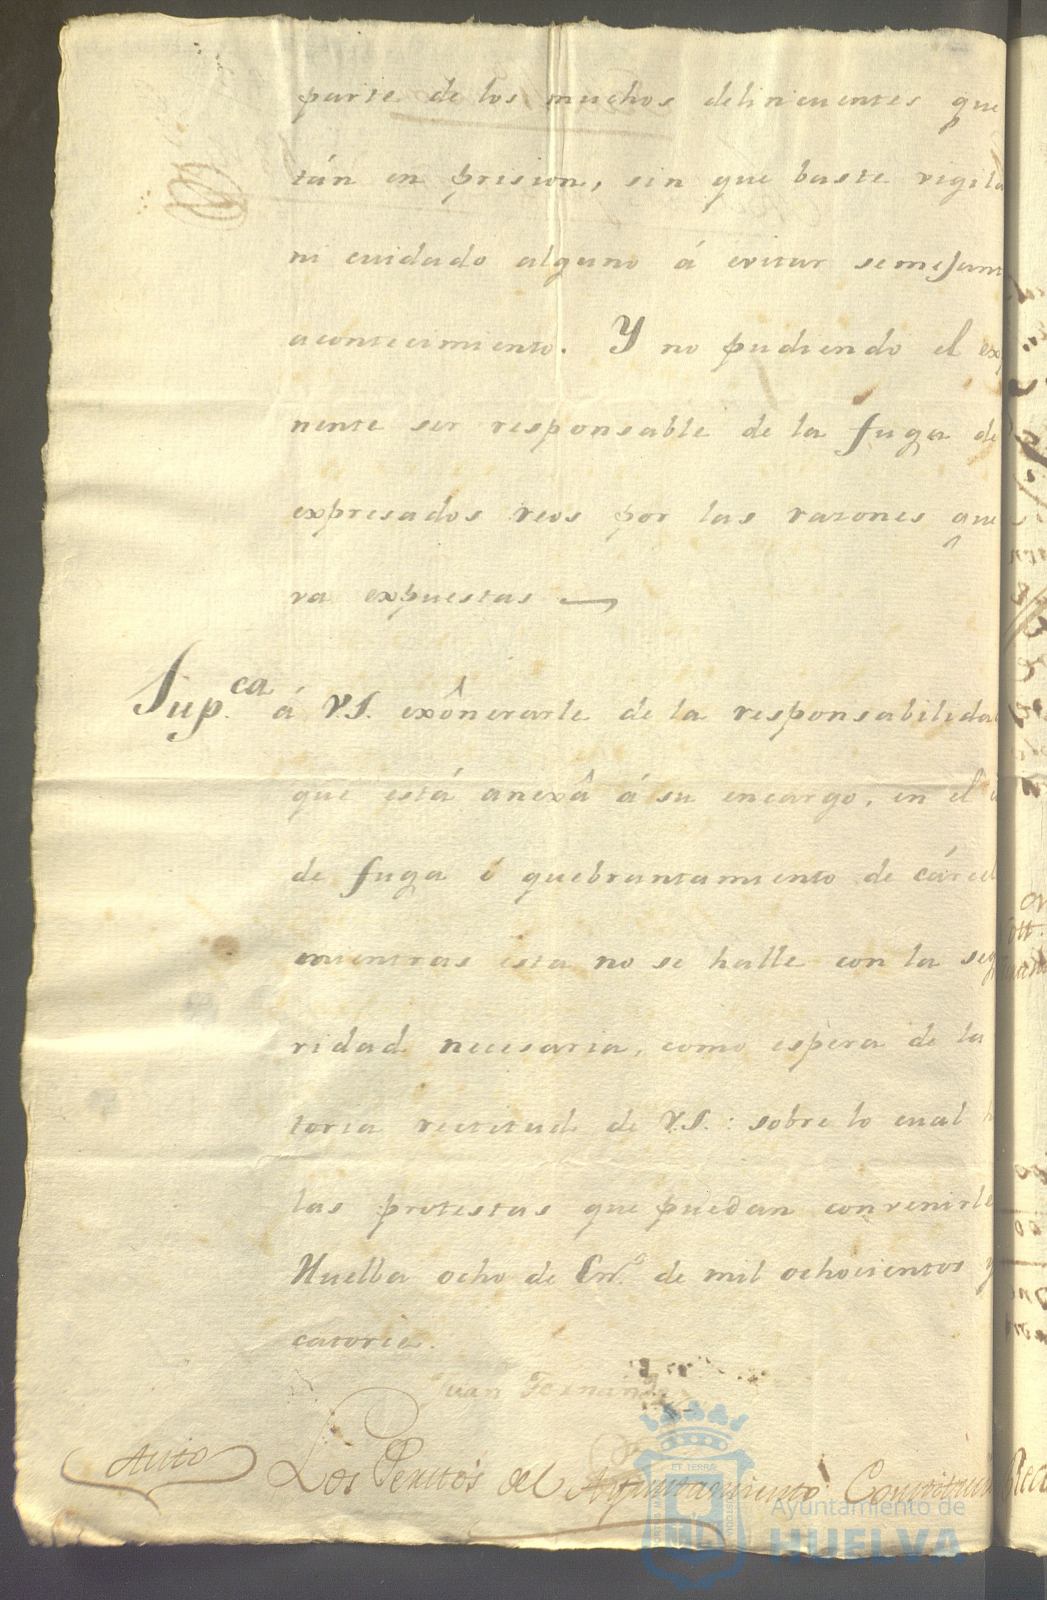 parte de los muchos delincuentes que
tán en prision, sin que baste vigila
ni cuidado alguno á evitar semejant
acontecimiento. Y no pudiendo el exp
nente ser responsable de la fuga de
expresados reos por las razones que
va expuestas
Sup.ca á V.S. exônerarle de la responsabilidad
que está anexâ á su encargo, en el
de fuga ó quebrantamiento de cárcel
mientras esta no se halle con la seg
ridad necesaria, como espera de la
toria rectitud de V.S.: sobre lo cual
las protestas que puedan convenirle
Huelba ocho de En.o de mil ochocientos y
catorce.
Juan Fernand
Auto
Los Peritos del Ayuntamiento
Ayuntamiento de
HUELVA